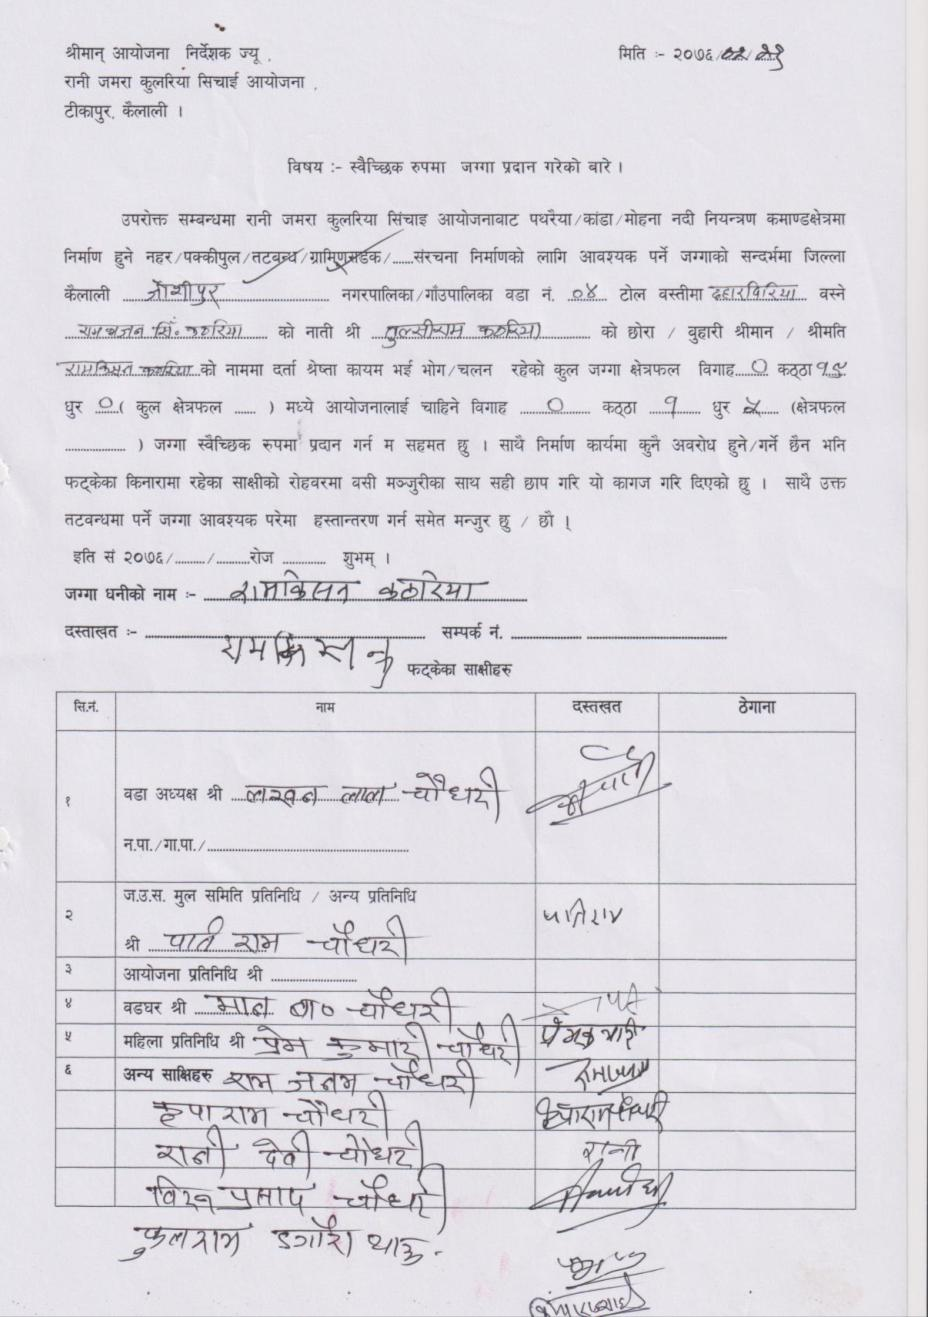 श्रीमान् आयोजना निर्देशक ज्यू , मिति :- २०७६/
रानी जमरा कुलरिया सिचाई आयोजना ,
टीकापुर, कैलाली ।
विषय :- स्वैच्छिक रुपमा जग्गा प्रदान गरेको बारे ।
उपरोक्त सम्बन्धमा रानी जमरा कुलरिया सिंचाइ आयोजनावाट पथरैया/कांडा/मोहना नदी नियन्त्रण कमाण्डक्षेत्रमा
निर्माण हुने नहर/पक्कीपुल/तटबन्ध/ग्रामिणसडक/......संरचना निर्माणको लागि आवश्यक पर्ने जग्गाको सन्दर्भमा जिल्ला
कैलाली जोशीपुर नगरपालिका/गाँउपालिका वडा नं. ०४ टोल वस्तीमा वस्ने
को नाती श्री तुल्सीराम कठरिया को छोरा / वुहारी श्रीमान / श्रीमति
रामकिसन कठरिया को नाममा दर्ता श्रेष्ता कायम भई भोग/चलन रहेको कुल जग्गा क्षेत्रफल विगाह ० कठ्ठा १९
धुर ० ( कुल क्षेत्रफल ...... ) मध्ये आयोजनालाई चाहिने विगाह ० कठ्ठा १ धुर ५ (क्षेत्रफल
.................. ) जग्गा स्वैच्छिक रुपमा प्रदान गर्न म सहमत छु । साथै निर्माण कार्यमा कुनै अवरोध हुने/गर्ने छैन भनि
फट्केका किनारामा रहेका साक्षीको रोहवरमा वसी मञ्जुरीका साथ सही छाप गरि यो कागज गरि दिएको छु । साथै उक्त
तटवन्धमा पर्ने जग्गा आवश्यक परेमा हस्तान्तरण गर्न समेत मन्जुर छु / छौ ।
इति सं २०७६/........./..........रोज ............ शुभम् ।
जग्गा धनीको नाम :- रामकिसन कठरिया
दस्ताखत :- रामकिसन सम्पर्क नं. .................... ........................................
फट्केका साक्षीहरु
सि.नं. नाम दस्तखत ठेगाना
१ वडा अध्यक्ष श्री लखन लाल चौधरी
न.पा./गा.पा./..........................................................
२ ज.उ.स. मुल समिति प्रतिनिधि / अन्य प्रतिनिधि
श्री पाती राम चौधरी पातिराम
३ आयोजना प्रतिनिधि श्री ........................
४ वडघर श्री मान ब० चौधरी
५ महिला प्रतिनिधि श्री प्रेम कुमारी चौधरी प्रेमकुमारी
६ अन्य साक्षिहरु राम जनम चौधरी
कृपा राम चौधरी कृपाराम चौधरी
रानी देवी चौधरी रानी
प्रसाद चौधरी
फुलराम डगौरा थारु